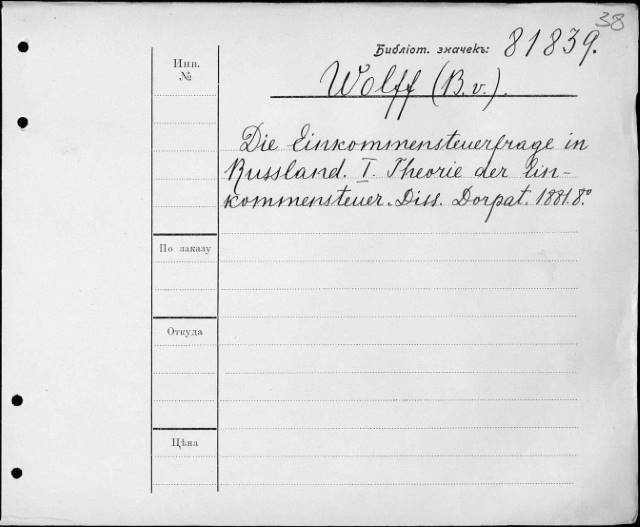 38
Библіот. значекъ: 81839.
Инв.
№
Wolff (B. v.).
Die Einkommensteuerfrage in
Russland. I. Theorie der Ein-
kommensteuer. Diss. Dorpat. 1881. 8º
По заказу
Откуда
Цѣна